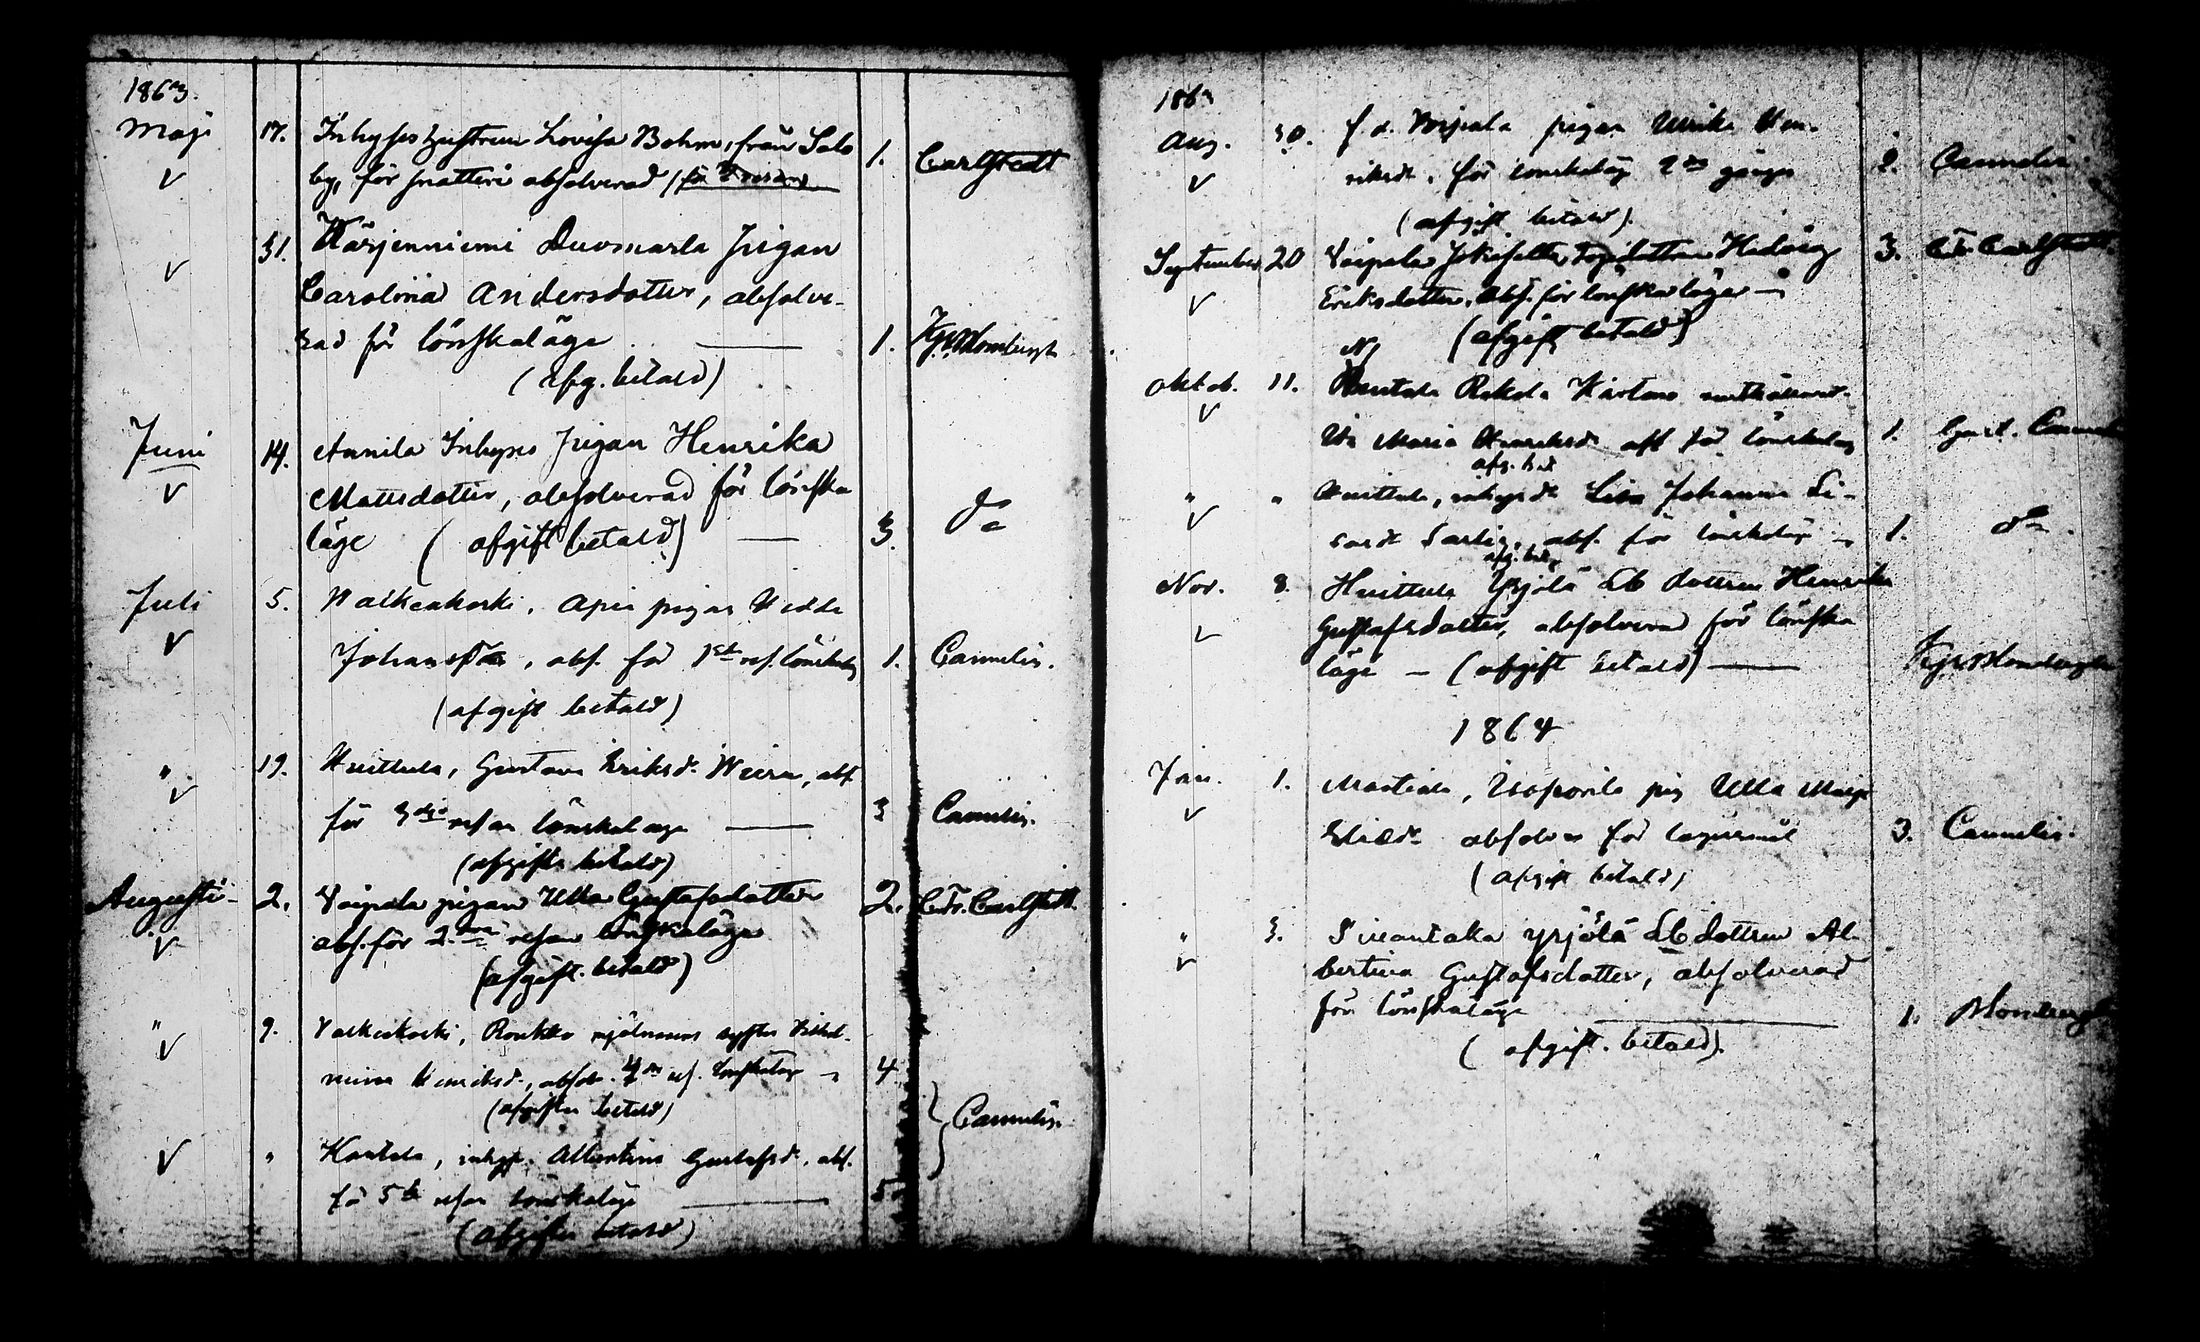 1863.
Maji 17. Inhyses hustrun Lovisa Bohm, från Salo
by, för snatteri absolverad 1. Carlstedt
31. Kärjenniemi Duvmarla pigan
Carolina Andersdotter, absolve-
rad för lönskaläge 1.
(afg. betald)
Juni 14. Annila Inhyses pigan Henrika
Mattsdotter, absolverad för lönska
läge (afgift betald) 3. do
Juli 5. Walkeakoski, Apia pigan Hedda
Johansdr, abs. för 1sta res. lönskaläg 1. Cannelin.
(afgift betald)
" 19. Huittula, Gustava Eriksd. Weira, abs.
för 3dje resan lönskaläge 3 Cannelin.
(afgiften betald)
Augusti 2. Voipala pigan Ulla Gustafsdotter
abs. för 2dra resan lönskaläge 2. C. Fr. Carlstedt.
(afgift. betald)
" 9. Valkeakoski, Ronkko mjölnarens syster Vilhel-
mina Henriksd., absolv. 4de res. lönskaläge 4
(afgiften betald)
" Kantala, inhys. Albertina Gustafsd. abs.
för 5te resan lönskaläge 5. Cannelin.
(afgiften betald)
1863
Aug. 30. f.d. Voipala pigan Ulrika Hen-
riksdr. för lönskaläg 2dra gången 2. Cannelin.
(afgift betald).
September 20 Voipala Jokiselta torpdottren Hedvig
Eriksdotter, abs. för lönskaläge 3. C. Fr. Carlstedt
(afgift betald)
Oktob. 11. Rekola
Maria Henriksdr abs för lönskaläg 1. Gust. Cannelin
afg. bet
" " Huittula, inhysdr Lisa Johanna
abs. för lönskaläge 1. do.
afg. bet.
Nov. 8. Huittula Yrjölä Lb dottren Henrika
Gustafsdotter, absolverad för lönska
läge — (afgift betald)
1864
Jan. 1. Isoporila pig Ulla Maja
absolv för lägersmål 3. Cannelin.
(afgift betald)
" 3. Yrjölä Lb dottren Al-
bertina Gustafsdotter, absolverad
för lönskaläge 1.
(afgift. betald).